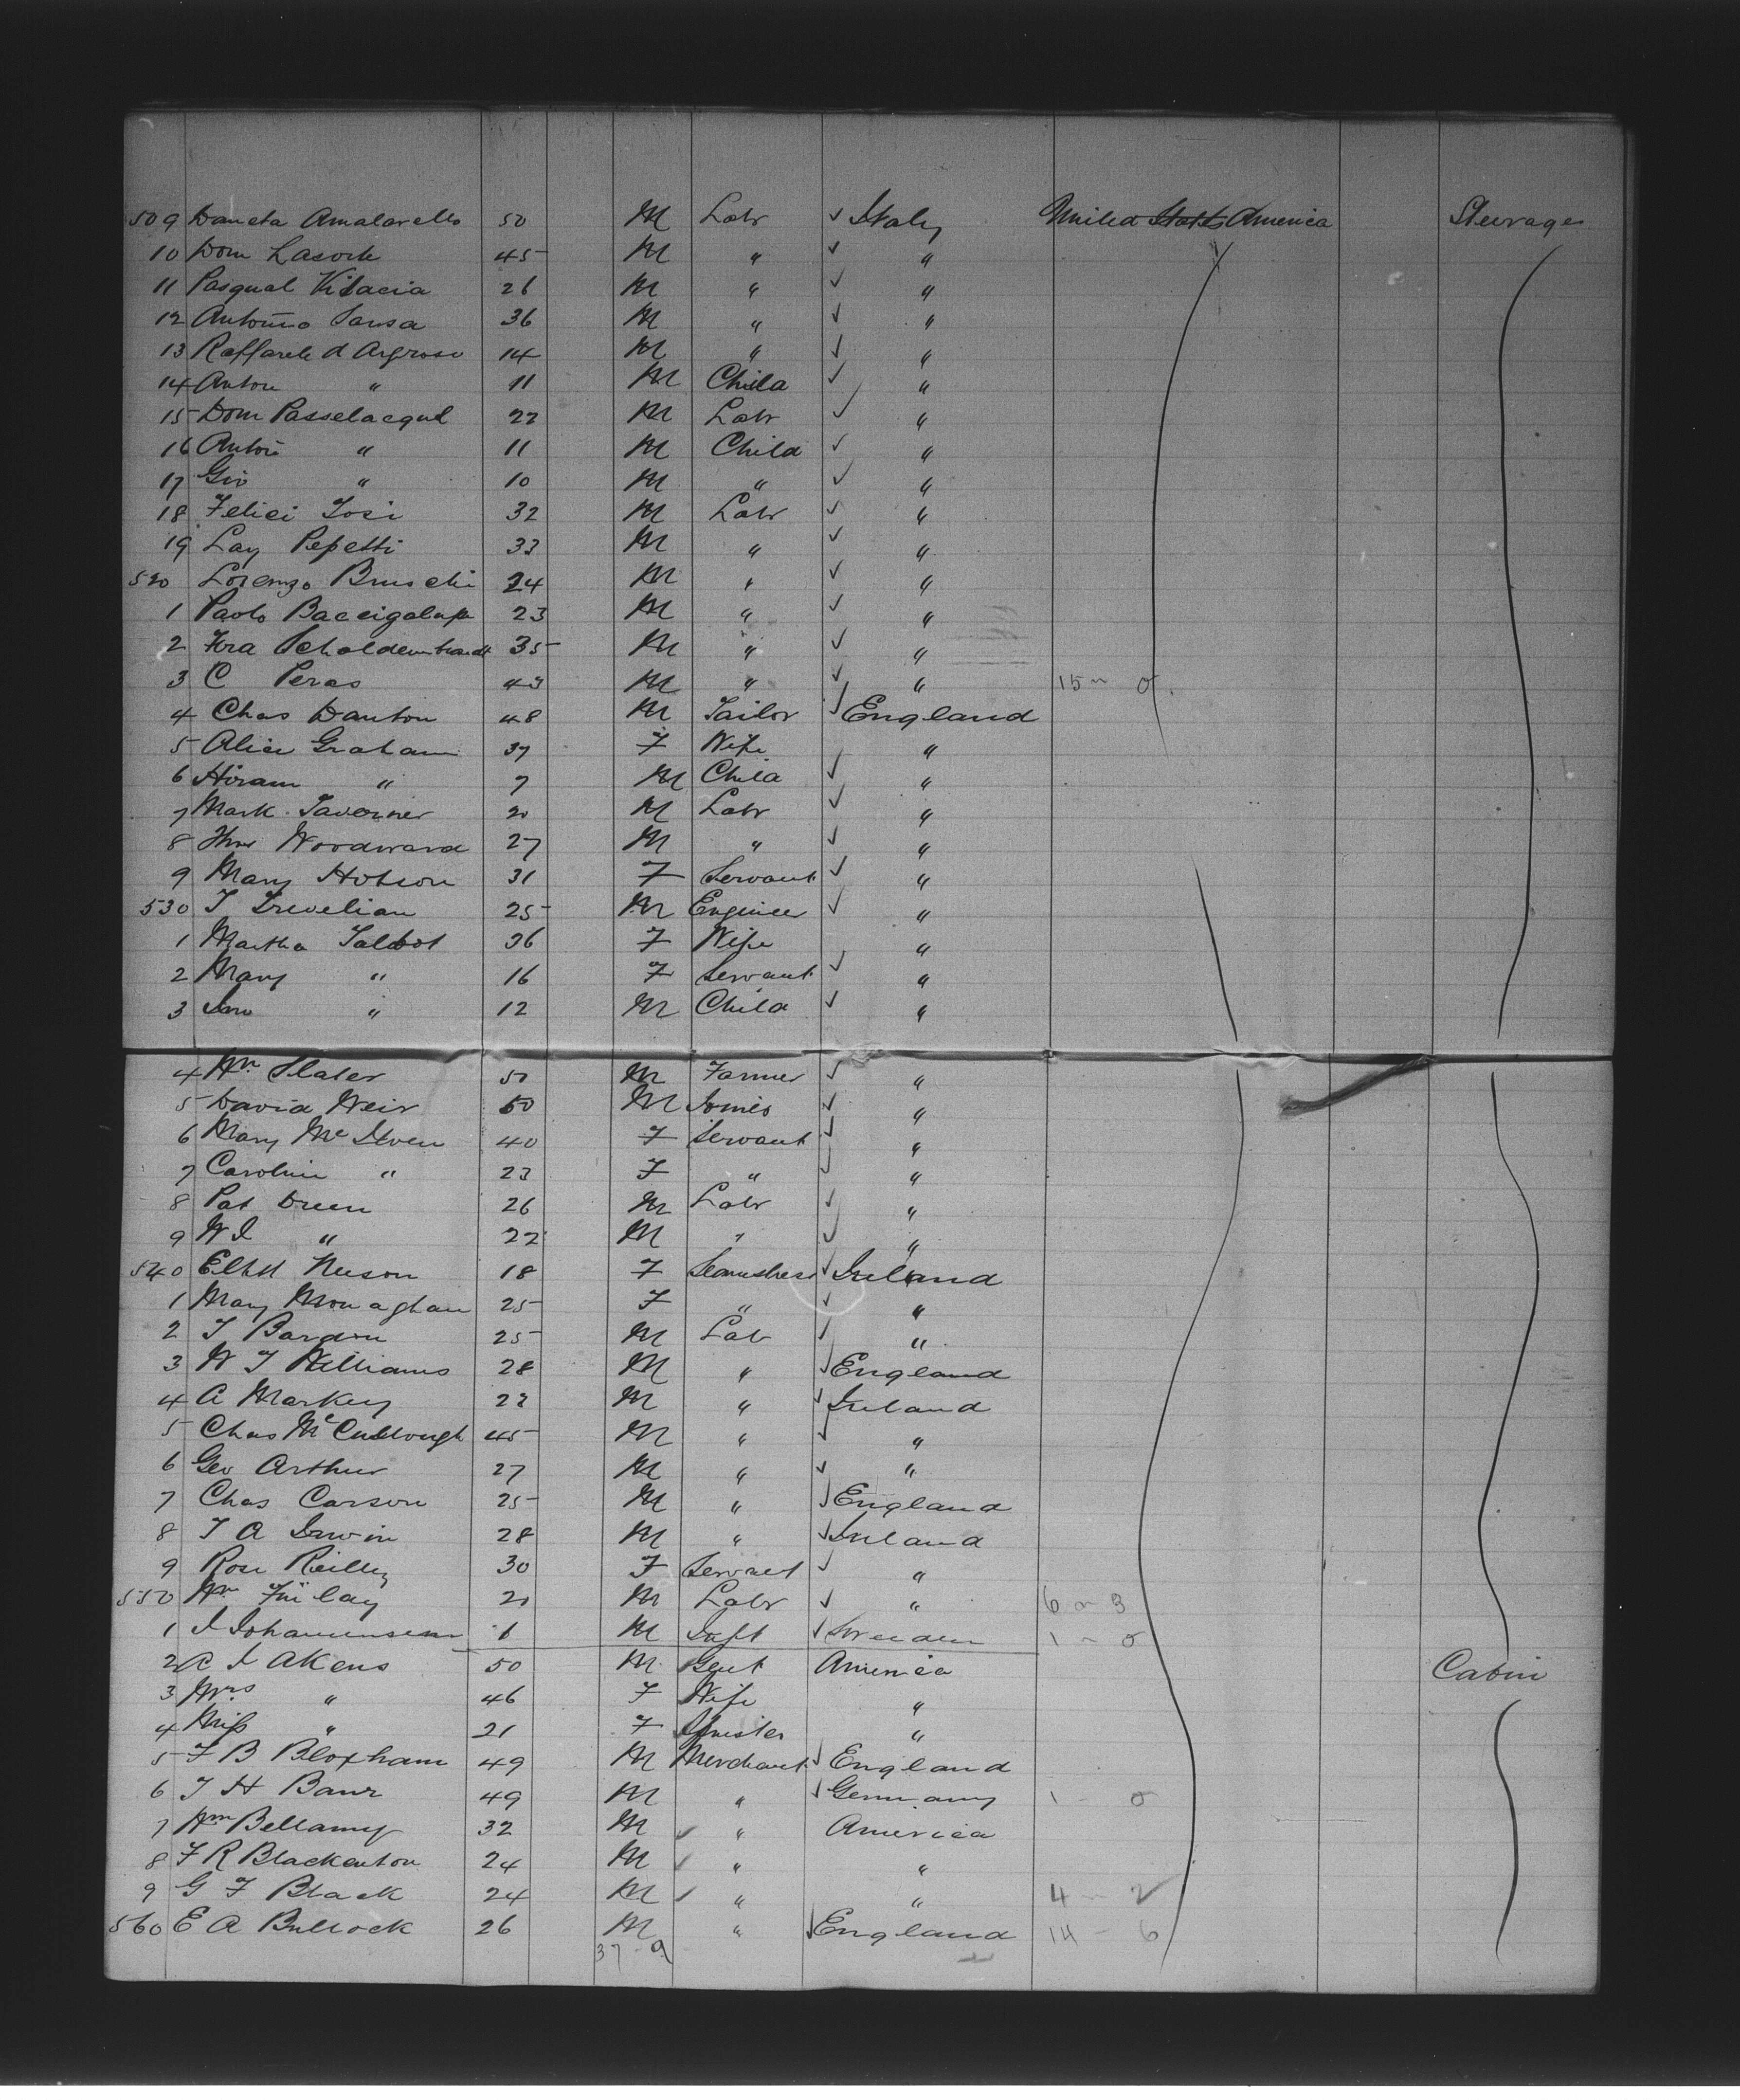 509 Daneta Amalarello 50 M Labr ✓ Italy United States America Steerage
10 Dom Lasorte 45 M " ✓ "
11 Pasqual Vilacia 26 M " ✓ "
12 Antonio Sansa 36 M " ✓ "
13 Raffaele d Argroso 14 M " ✓ "
14 Anton " 11 M Child ✓ "
15 Dom Passelacqul 22 M Labr ✓ "
16 Anton " 11 M Child ✓ "
17 Gio " 10 M " ✓ "
18 Felici Tosi 32 M Labr ✓ "
19 Lay Pepetti 33 M " ✓ "
520 Lorenzo Bruschi 24 M " ✓ "
1 Paolo Baccigalupa 23 M " ✓ "
2 Fra Scholdembrandt 35 M " ✓ "
3 C Peras 43 M " ✓ " 15 - 0
4 Chas Danton 48 M Tailor ✓ England
5 Alice Graham 37 F Wife "
6 Hiram " 7 M Child ✓ "
7 Mark Taverner 20 M Labr ✓ "
8 Thos Woodward 27 M " ✓ "
9 Mary Hobson 31 F Servant ✓ "
530 T Trevelian 25 M Engineer ✓ "
1 Martha Talbot 36 F Wife "
2 Mary " 16 F Servant ✓ "
3 Jno " 12 M Child ✓ "
4 Wm Slater 50 M Farmer ✓ "
5 David Weir 50 M ✓ "
6 Mary Mc Ilveen 40 F Servant ✓ "
7 Caroline " 23 F " ✓ "
8 Pat Dreen 26 M Labr ✓ "
9 W I " 22 M " ✓ "
540 Elbth Neeson 18 F Seamstress ✓ Ireland
1 Mary Monaghan 25 F " ✓ "
2 T Bardon 25 M Lab ✓ "
3 W T Williams 28 M " ✓ England
4 A Markey 22 M " ✓ Ireland
5 Chas McCullough 45 M " ✓ "
6 Geo Arthur 27 M " ✓ "
7 Chas Carson 25 M " ✓ England
8 T A Irwin 28 M " ✓ Ireland
9 Rose Reilly 30 F Servant ✓ "
550 Wm Finlay 20 M Labr ✓ " 6 - 3
1 J Johannensenn 6 M Inft ✓ Sweden 1 - 0
2 A J Akens 50 M Gent America Cabin
3 Mrs " 46 F Wife "
4 Miss " 21 F Spinster "
5 F B Bloxham 49 M Merchant ✓ England
6 T H Banr 49 M " ✓ Germany 1 - 0
7 Wm Bellamy 32 M ✓ " America
8 F R Blackenton 24 M ✓ " "
9 G F Black 24 M ✓ " " 4 - 2
560 E A Bullock 26 M " ✓ England 14 - 6
37 - 9